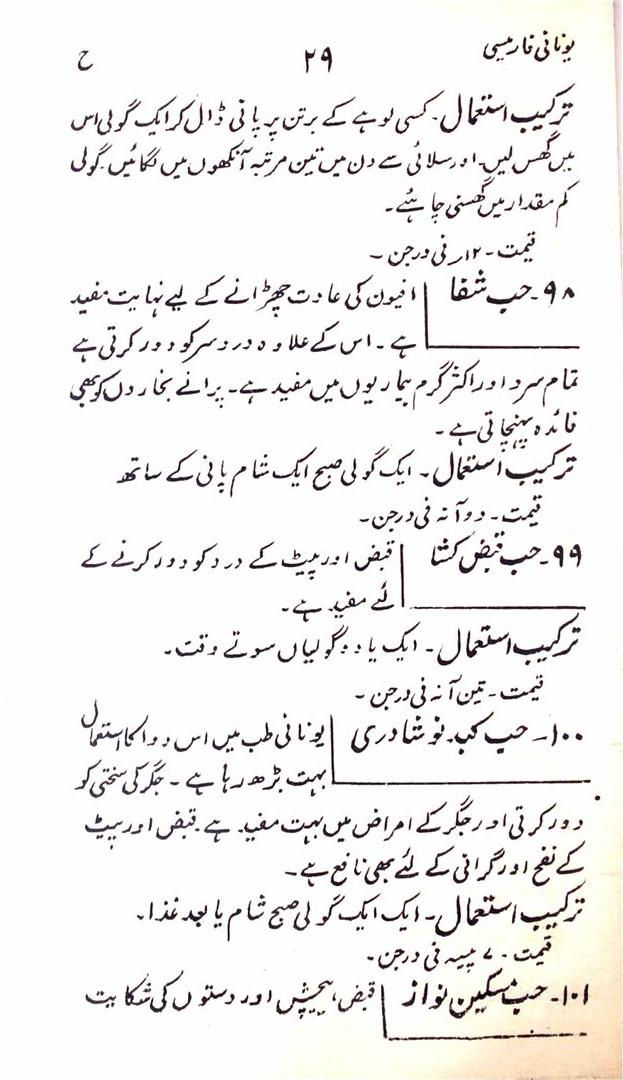 یونانی فارمیسی ۲۹ ح
ترکیب استعمال۔ کسی لوہے کے برتن پر پانی ڈال کر ایک گولی اس
میں گھس لیں۔ اور سلائی سے دن میں تین مرتبہ آنکھوں میں لگائیں۔ گولی
کم مقدار میں گھسنی چاہئے۔
قیمت۔ ۱۲ر فی درجن۔
۹۸۔ حب شفا افیون کی عادت چھڑانے کے لیے نہایت مفید
ہے۔ اس کے علاوہ درد سر کو دور کرتی ہے
تمام سرد اور اکثر گرم بیماریوں میں مفید ہے۔ پرانے بخاردں کو بھی
فائدہ پہنچاتی ہے۔
ترکیب استعمال۔ ایک گولی صبح ایک شام پانی کے ساتھ
قیمت۔ دو آنہ فی درجن۔
۹۹۔ حب قبض کشا قبض اور پیٹ کے درد کو دور کرنے کے
لئے مفید ہے۔
ترکیب استعمال۔ ایک یا دو گولیاں سوتے وقت۔
قیمت۔ تین آنہ فی درجن۔
۱۰۰۔ حب کبد نوشادری یونانی طب میں اس دوا کا استعمال
بہت بڑھ رہا ہے۔ جگر کی سختی کو
دور کرتی اور جگر کے امراض میں بہت مفید ہے۔ قبض اور پیٹ
کے نفخ اور گرانی کے لئے بھی نافع ہے۔
ترکیب استعمال۔ ایک ایک گولی صبح شام یا بعد غذا۔
قیمت۔ ۷ پیسہ فی درجن۔
۱۰۱۔ حب مسکین نواز قبض، پیچش اور دستوں کی شکایت